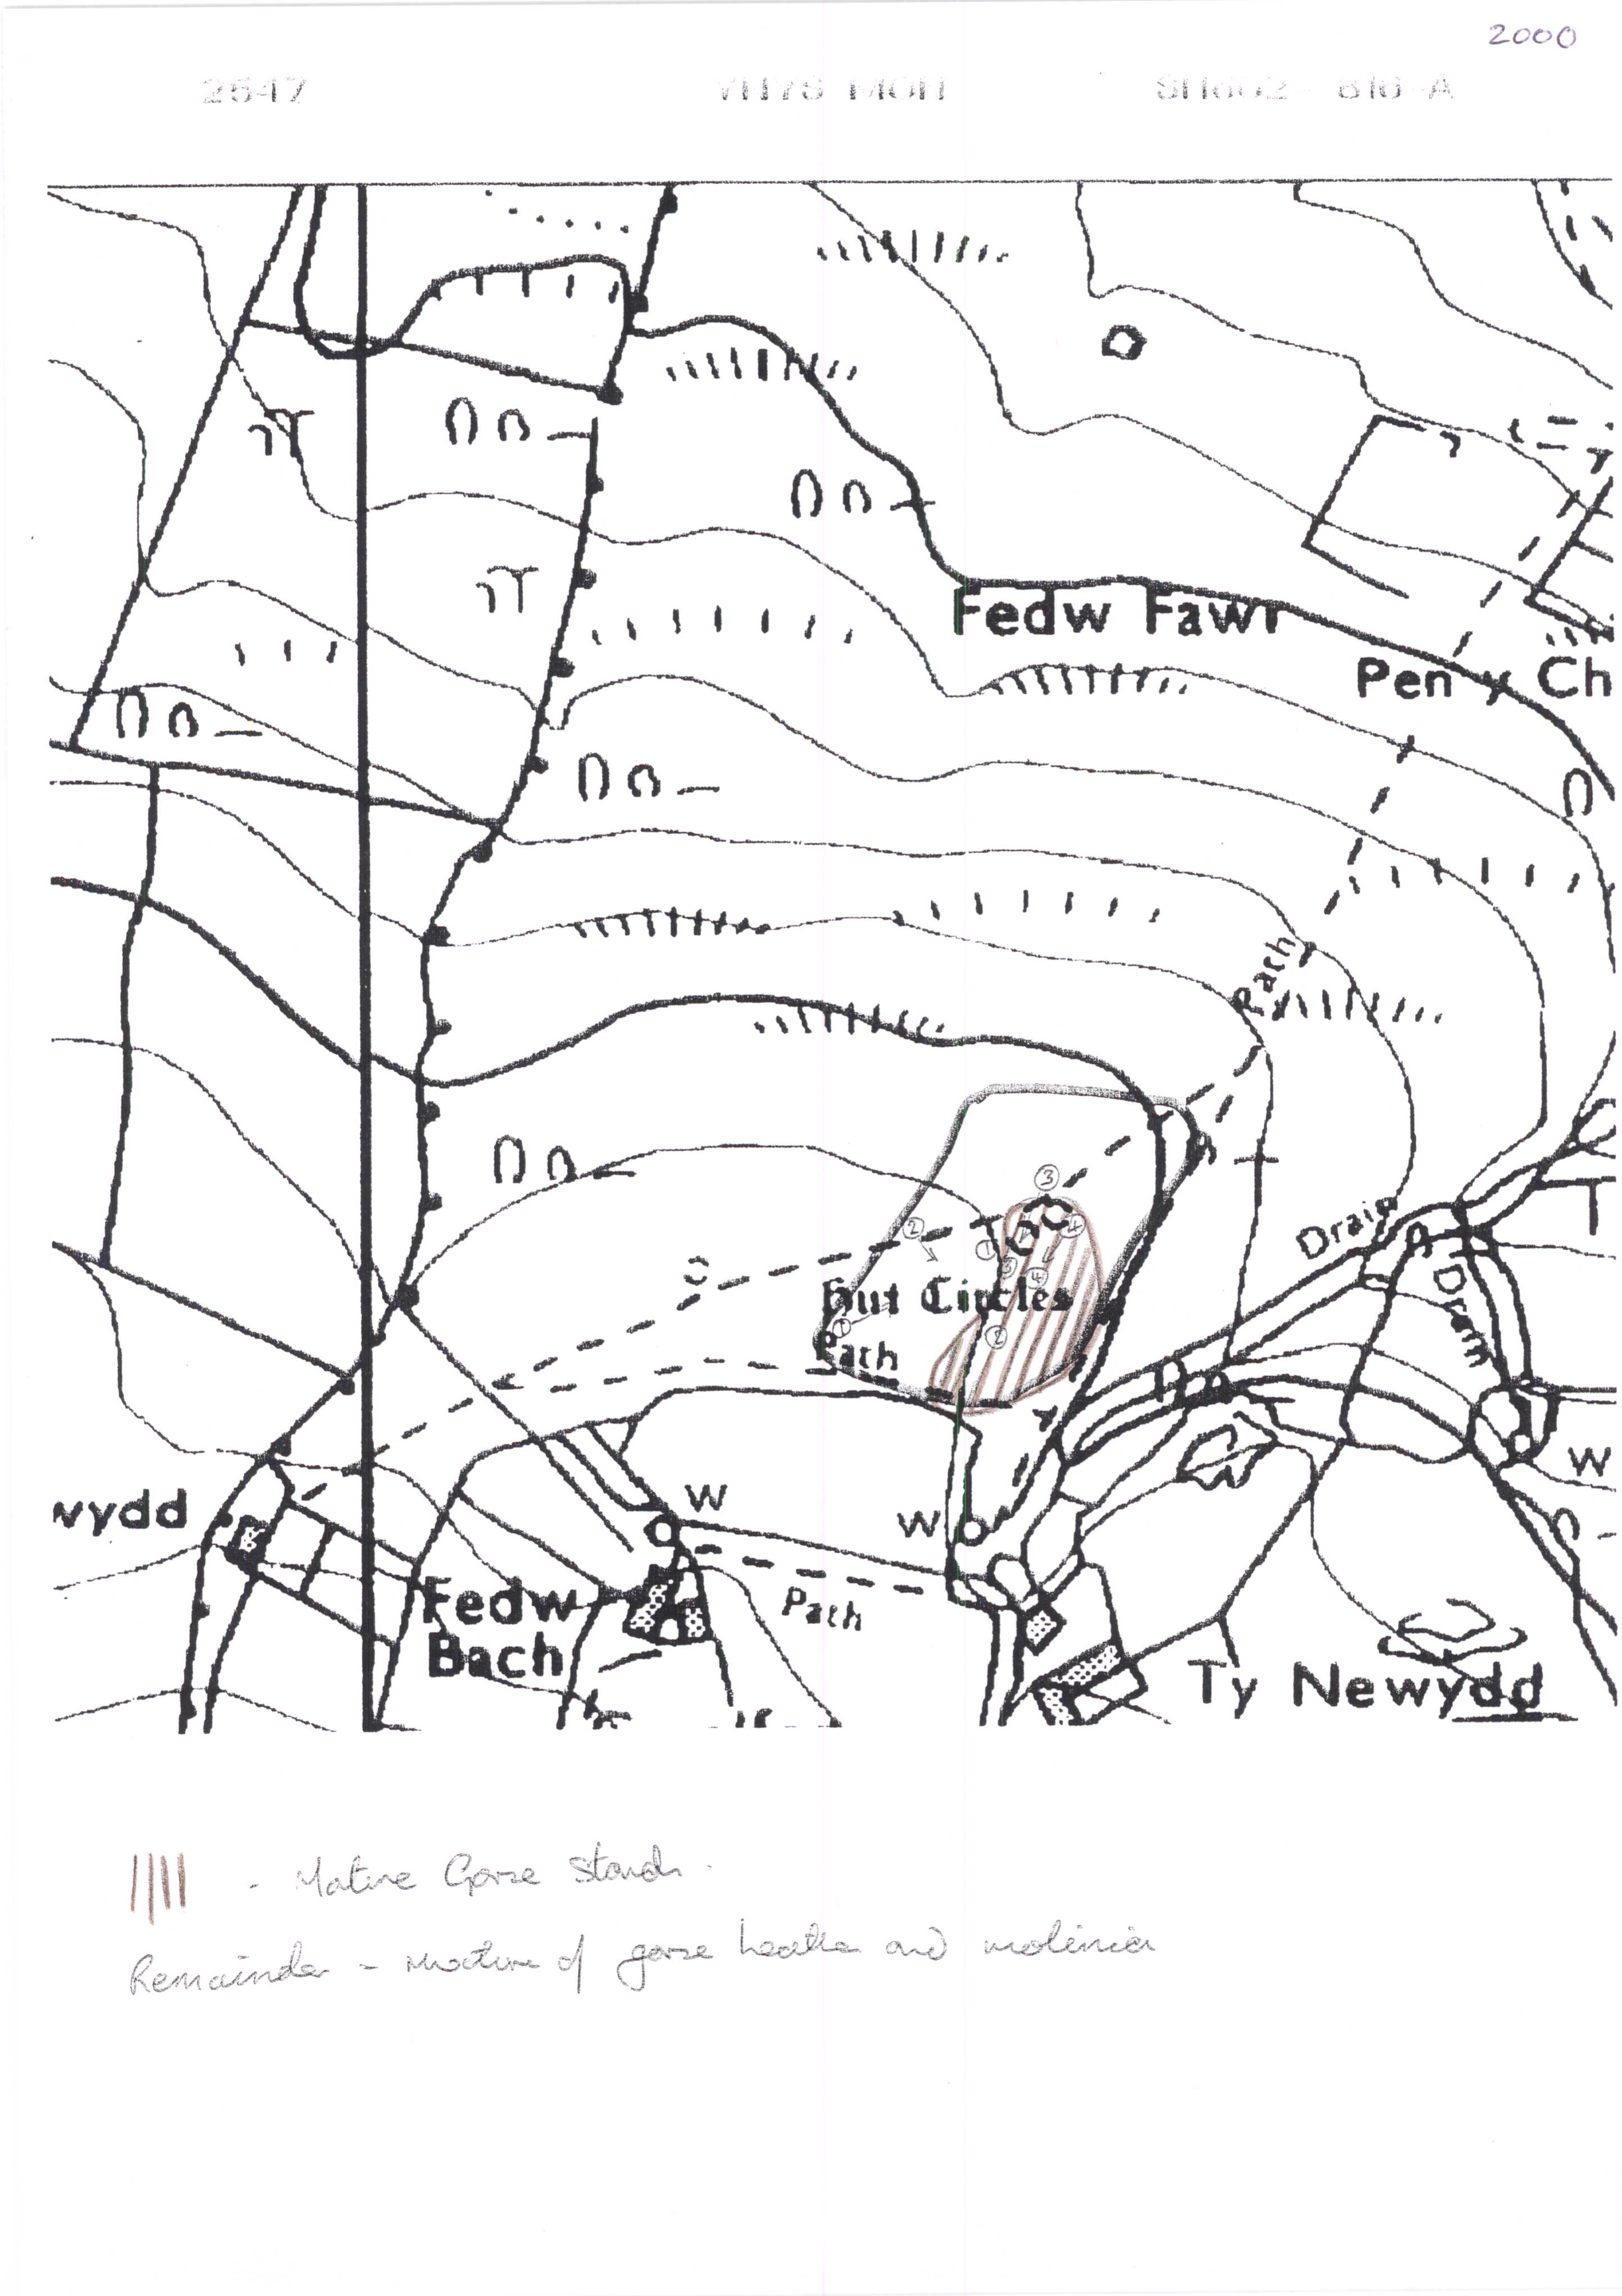 2000
2547 YNYS MON
Fedw Fawr
Pen y Ch
Path
Drain
Drain
Hut Circles
Path
3
2
4
1
3
4
1
2
W
W
W
wydd
Fedw
Bach
Path
Ty Newydd
- Mature Gorse Stands.
Remainder - mixture of gorse heather and molinia